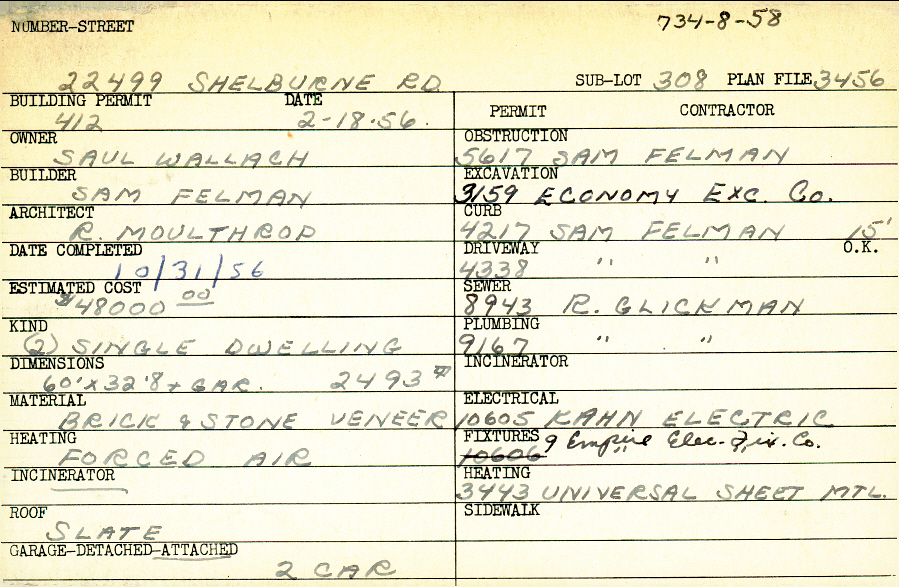 734-8-58
NUMBER-STREET
22499 SHELBURNE RD SUB-LOT 308 PLAN FILE 3456
BUILDING PERMIT DATE
412 2-18-56.
OWNER
SAUL WALLACH
BUILDER
SAM FELMAN
ARCHITECT
R. MOULTHROP
DATE COMPLETED
10/31/56
ESTIMATED COST
$48000 00
KIND
(2) SINGLE DWELLING
DIMENSIONS
60'x32'8+ GAR. 2493
MATERIAL
BRICK & STONE VENEER
HEATING
FORCED AIR
INCINERATOR
ROOF
SLATE
GARAGE-DETACHED-ATTACHED
2 CAR
PERMIT CONTRACTOR
OBSTRUCTION
5617 SAM FELMAN
EXCAVATION
3159 ECONOMY EXC. Co.
CURB
4217 SAM FELMAN 15'
DRIVEWAY O.K.
4338 " "
SEWER
8943 R. GLICKMAN
PLUMBING
9167 " "
INCINERATOR
ELECTRICAL
10605 KAHN ELECTRIC
FIXTURES 9 Empire Elec. Fix. Co.
10606 " "
HEATING
3443 UNIVERSAL SHEET MTL.
SIDEWALK